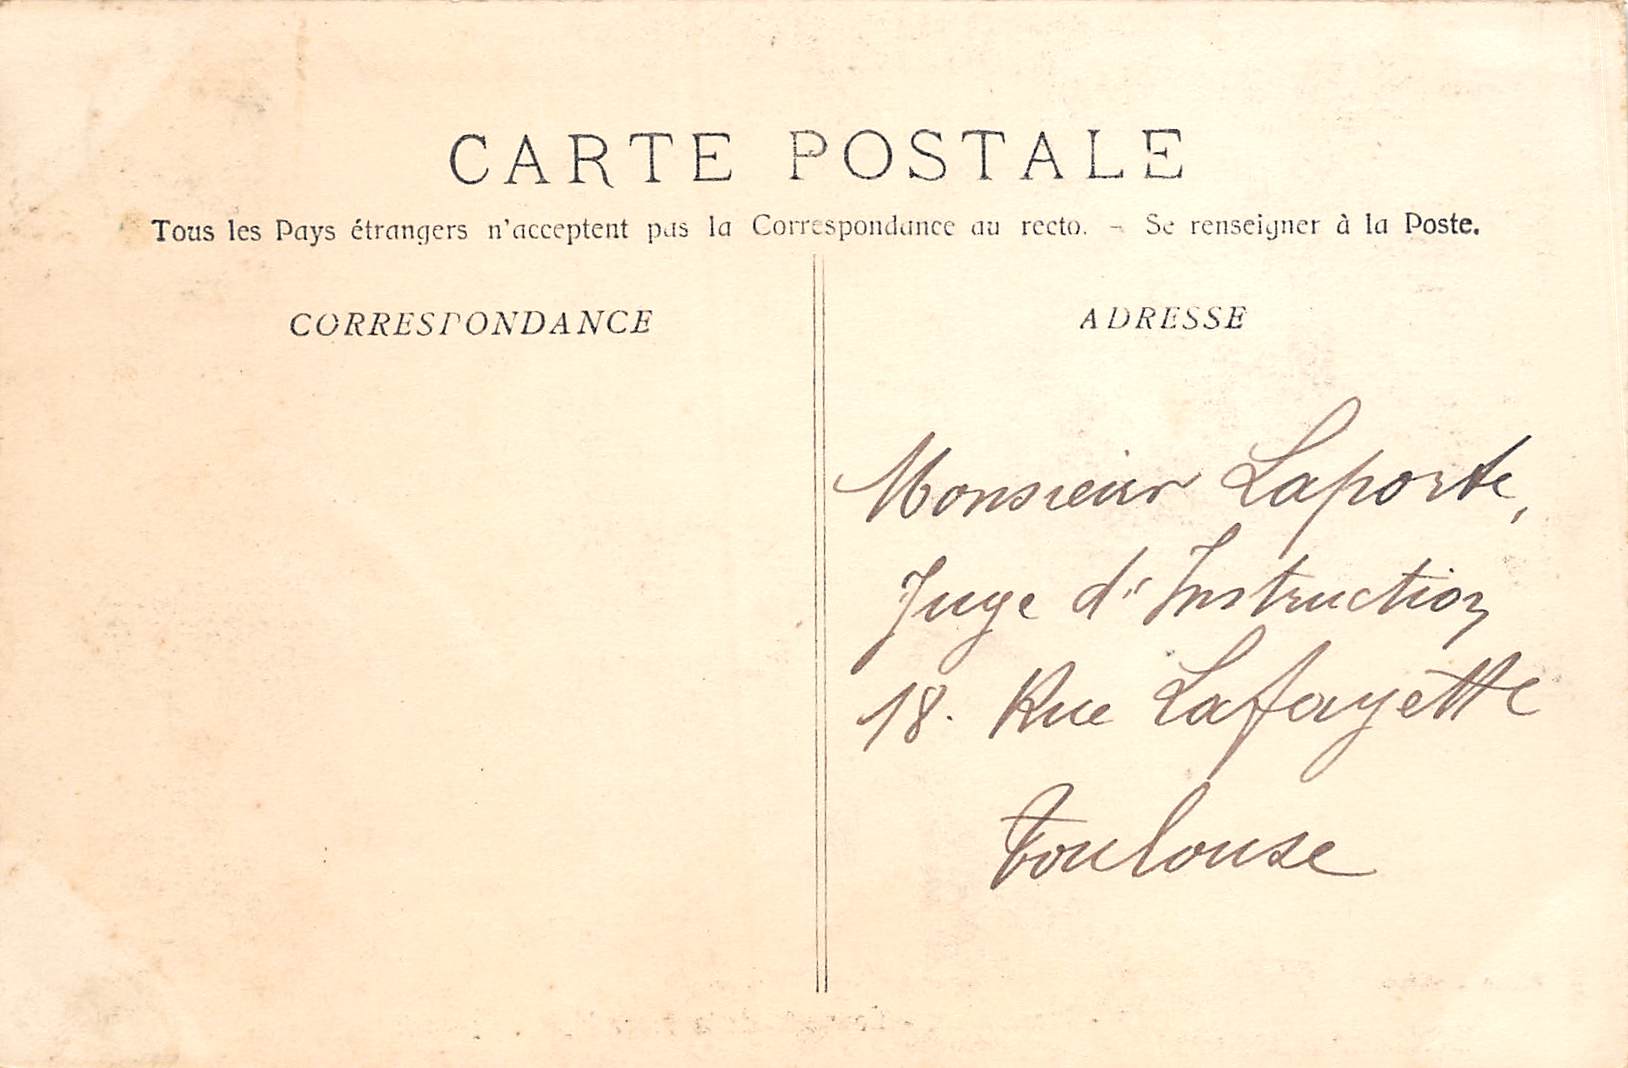 CARTE POSTALE
Tous les Pays étrangers n'acceptent pas la Correspondance au recto. - Se renseigner à la Poste.
CORRESPONDANCE
ADRESSE
Monsieur Laporte,
Juge d'Instruction
18. Rue Lafayette
Toulouse